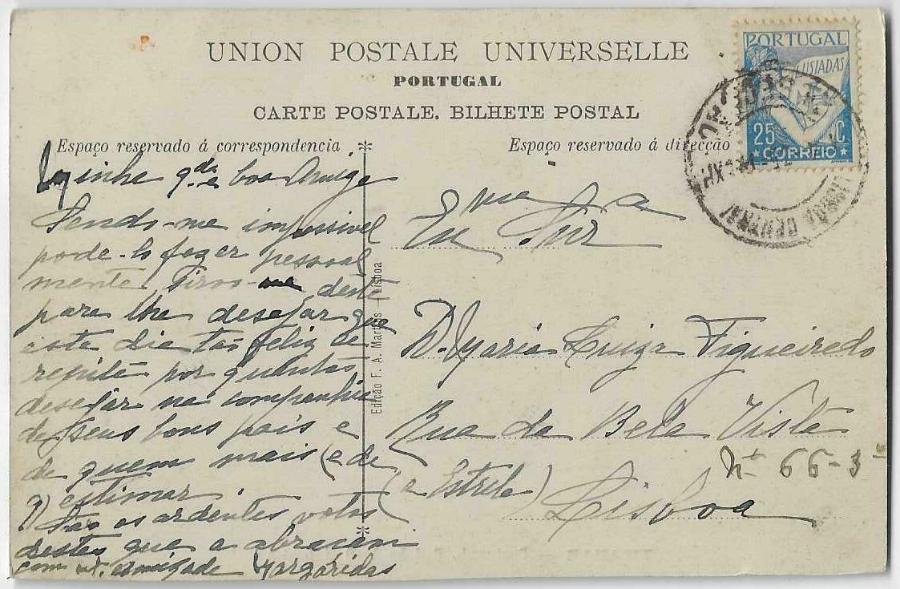 UNION POSTALE UNIVERSELLE
PORTUGAL
CARTE POSTALE. BILHETE POSTAL
Espaço reservado á correspondencia
Espaço reservado á direcção
PORTUGAL
LUSIADAS
25 C
CORREIO
LISBOA CENTRAL
Minha qda e boa Amiga
Sendo-me impossivel
pode-lo fazer pessoal
mente sirvo-me deste
para lhe desejar que
este dia tão feliz se
repita por quantos
desejar na companhia
de seus bons pais e
de quem mais (e de
q) estimar.
São os ardentes votos
destas que a abraçam
com mt. amizade Margaridas
Edição F. A. Martins Lisboa
Exma Snra
D. Maria Luiza Figueiredo
Rua da Bela Vista
(a Estrela)
Nº 66-3º
Lisboa